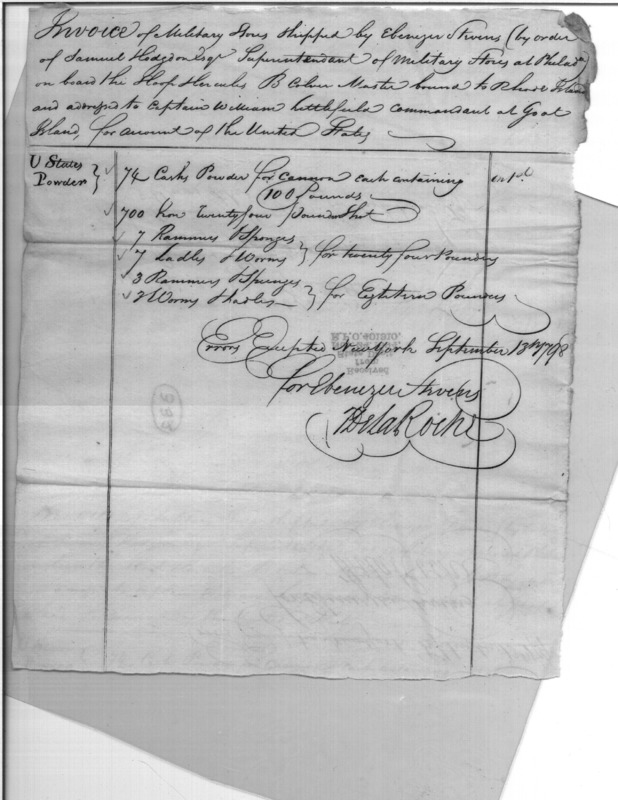 Invoice of Military Stores Shipped by Ebenezer Stevens (by order
of Samuel Hodgdon Esqr Superintendant of Military Stores at Philada
on board the Sloop Hercules B Master bound to Rhode Island
and adressed to Captain William Littlefield Commandant at Goat
Island, for account of the United States
U States
Powder
74 Casks Powder for Cannon each containing
100 Pounds
700 Twenty four Pound Shot
7 Rammers & Sponges
7 Ladles & Worms } for twenty four Pounders
3 Rammers & Sponges
2 Worms & Ladles } for Eighteen Pounders
Errors Excepted New York September 13th 1798
R.F.O. 401910.
from
Received
for Ebenezer Stevens
DelaRoche
333